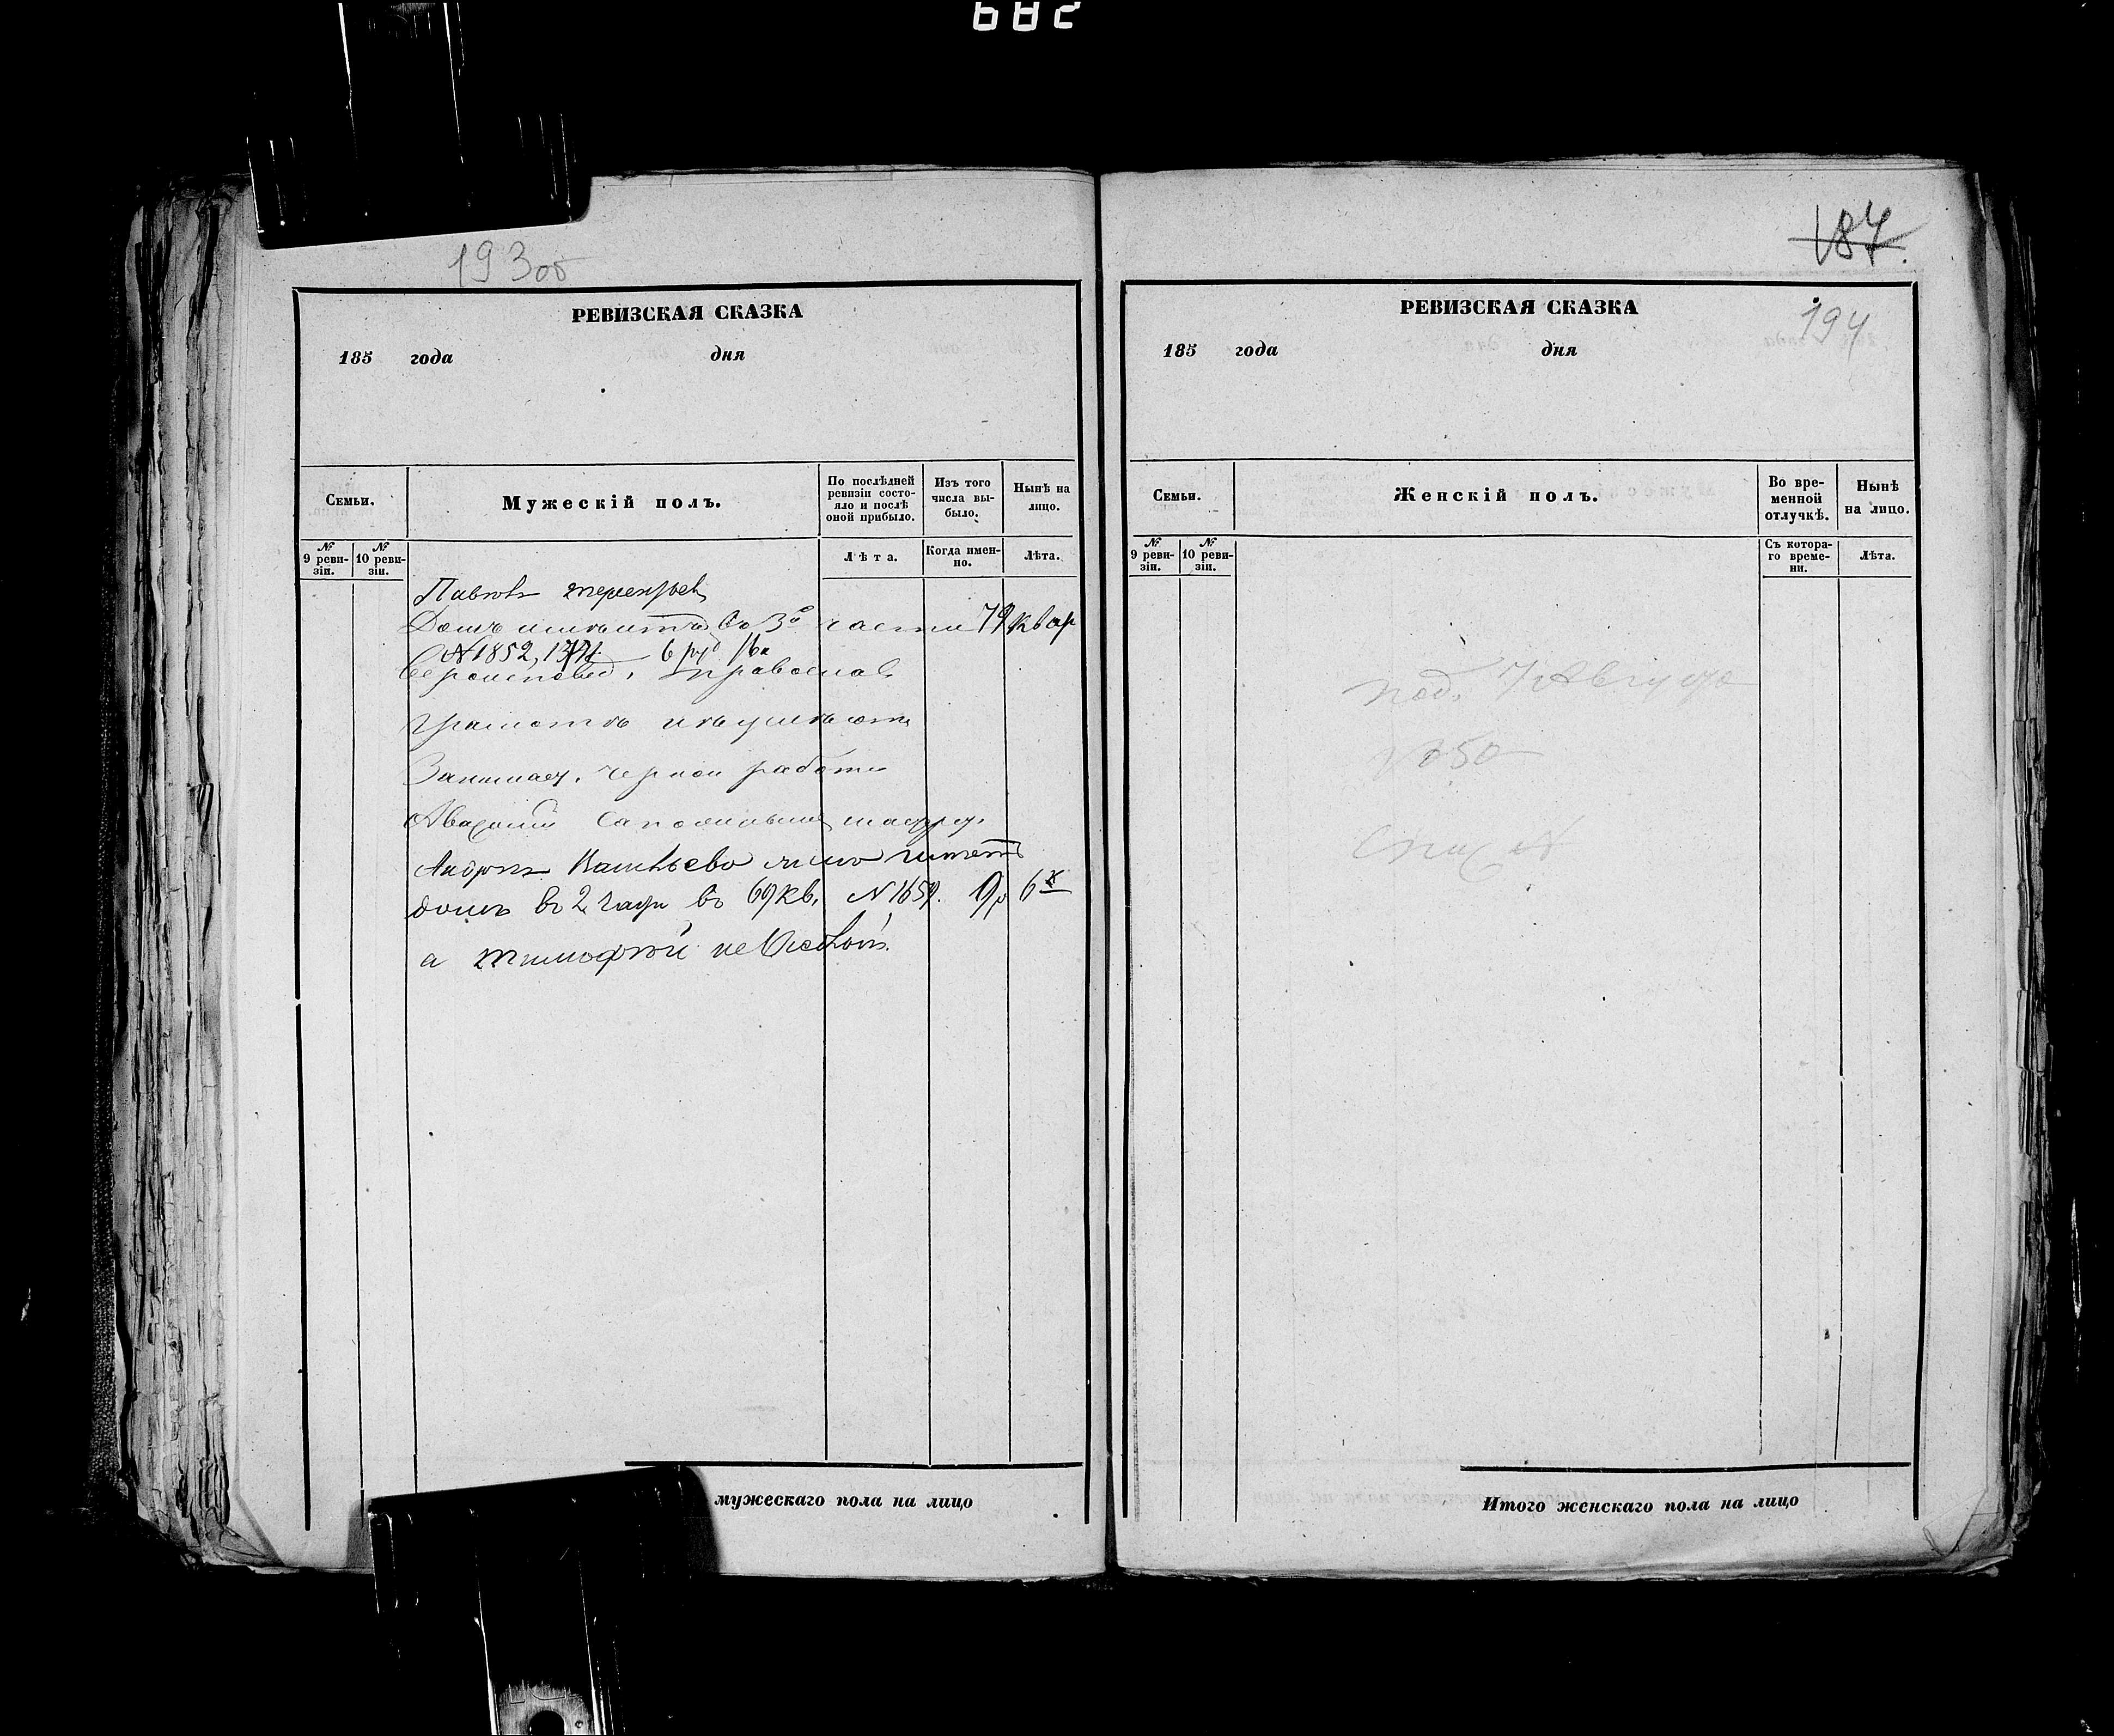 682
193 об
РЕВИЗСКАЯ СКАЗКА
185 года дня
Семьи.
Мужескій полъ.
По послѣдней ревизіи состо-
яло и послѣ оной прибыло.
Изъ того числа вы-
было.
Нынѣ на лицо.
№ 9 реви-
зіи.
№ 10 реви-
зіи.
Лѣта.
Когда имен-
но.
Лѣта.
Павелъ Терентьев
Домъ имѣетъ во 3й части 79 квар
№ 1852, 6 руб
Вероисповед. православ
грамотѣ не умѣютъ
Занимает. черной работ
Андрей
домъ в 2 части в 69 кв. № 1659. 9р 6к
а Тимофей не
мужескаго пола на лицо
187.
194
РЕВИЗСКАЯ СКАЗКА
185 года дня
Семьи.
Женскій полъ.
Во вре-
менной отлучкѣ.
Нынѣ на лицо.
№ 9 реви-
зіи.
№ 10 реви-
зіи.
Съ котора-
го време-
ни.
Лѣта.
под. 7 Августа
Итого женскаго пола на лицо